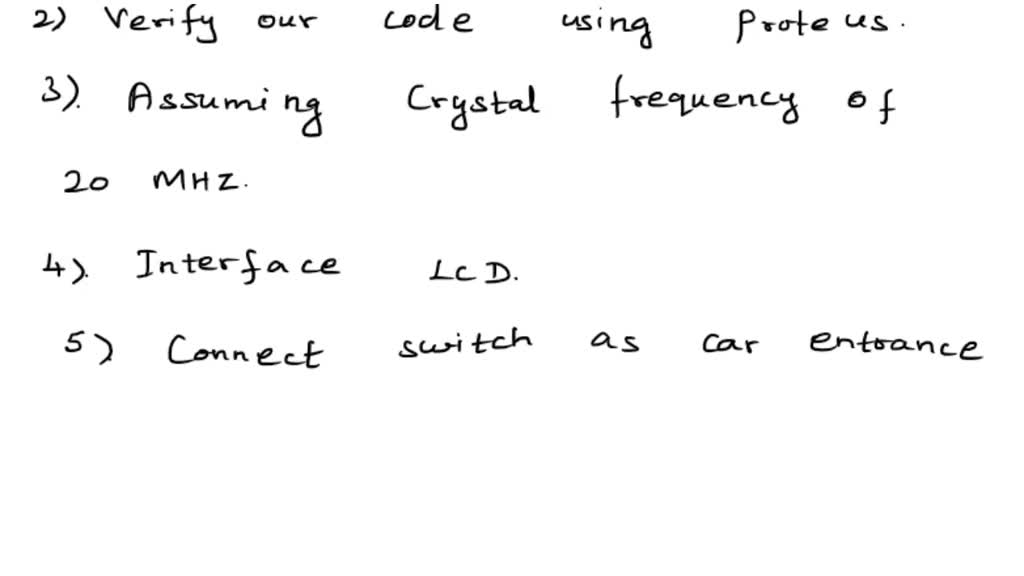 2) Verify our code using Proteus.
3). Assuming Crystal frequency of
20 MHZ.
4). Interface LCD.
5) Connect switch as car entrance